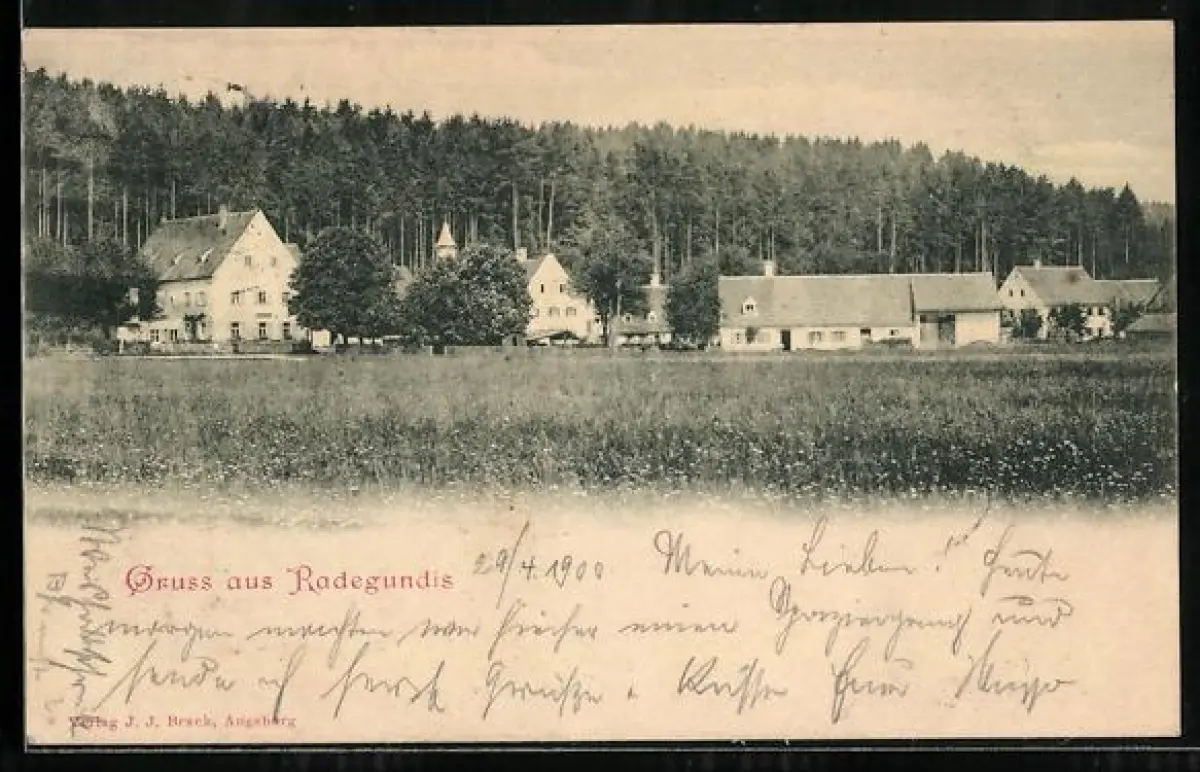 Gruss aus Radegundis
29/4. 1900. Meine Lieben! Heute
morgen machten wir hieher einen Spaziergang und
sende ich herzl. Grüße u. Küsse Euer
Verlag J. J. Brack, Augsburg